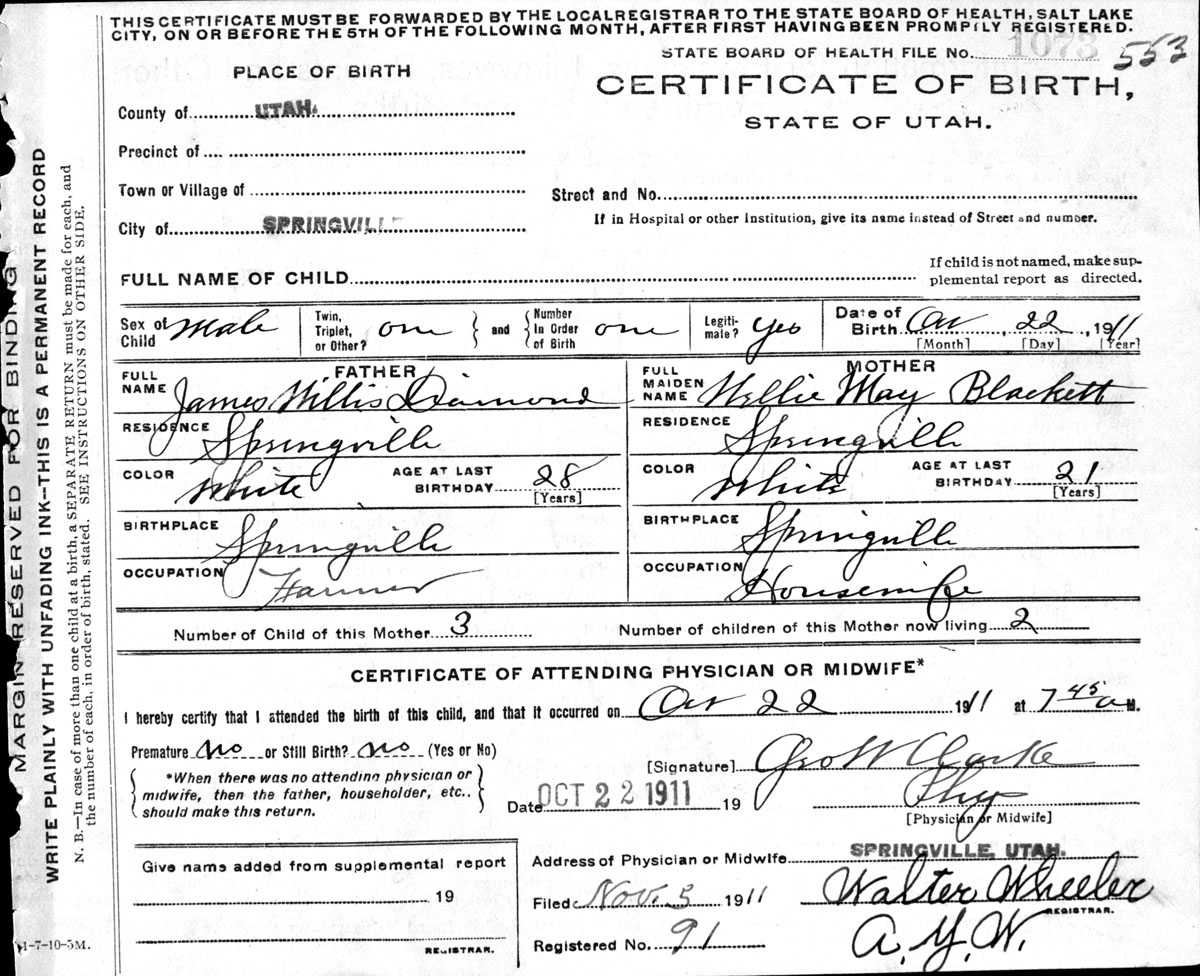 THIS CERTIFICATE MUST BE FORWARDED BY THE LOCAL REGISTRAR TO THE STATE BOARD OF HEALTH, SALT LAKE
CITY, ON OR BEFORE THE 5TH OF THE FOLLOWING MONTH, AFTER FIRST HAVING BEEN PROMPTLY REGISTERED.
STATE BOARD OF HEALTH FILE No. 1073 553
PLACE OF BIRTH
CERTIFICATE OF BIRTH,
STATE OF UTAH.
County of UTAH.
Precinct of
Town or Village of
Street and No.
If in Hospital or other Institution, give its name instead of Street and number.
City of SPRINGVILLE
FULL NAME OF CHILD
If child is not named, make sup-
plemental report as directed.
Sex of Child Male
Twin, Triplet, or Other? one
and
Number In Order of Birth one
Legiti-mate? Yes
Date of Birth Oct 22, 1911
[Month] [Day] [Year]
FATHER
FULL NAME James Willis Diamond
RESIDENCE Springville
COLOR White AGE AT LAST BIRTHDAY 28
[Years]
BIRTHPLACE Springville
OCCUPATION Farmer
MOTHER
FULL MAIDEN NAME Nellie May Blackett
RESIDENCE Springville
COLOR White AGE AT LAST BIRTHDAY 21
[Years]
BIRTHPLACE Springville
OCCUPATION Housewife
Number of Child of this Mother 3 Number of children of this Mother now living 2
CERTIFICATE OF ATTENDING PHYSICIAN OR MIDWIFE*
I hereby certify that I attended the birth of this child, and that it occurred on Oct 22 1911 at 7 45 a M.
Premature No or Still Birth? No (Yes or No)
*When there was no attending physician or
midwife, then the father, householder, etc..
should make this return.
[Signature] Geo W Clarke
Phy
Date OCT 22 1911 19
[Physician or Midwife]
Give name added from supplemental report
19
REGISTRAR.
Address of Physician or Midwife SPRINGVILLE, UTAH.
Filed Nov. 5 1911 Walter Wheeler
REGISTRAR.
Registered No. 91 A. Y. W.
11-7-10-5M.
MARGIN RESERVED FOR BINDING
WRITE PLAINLY WITH UNFADING INK—THIS IS A PERMANENT RECORD
N. B.—In case of more than one child at a birth, a SEPARATE RETURN must be made for each, and
the number of each, in order of birth, stated. SEE INSTRUCTIONS ON OTHER SIDE.